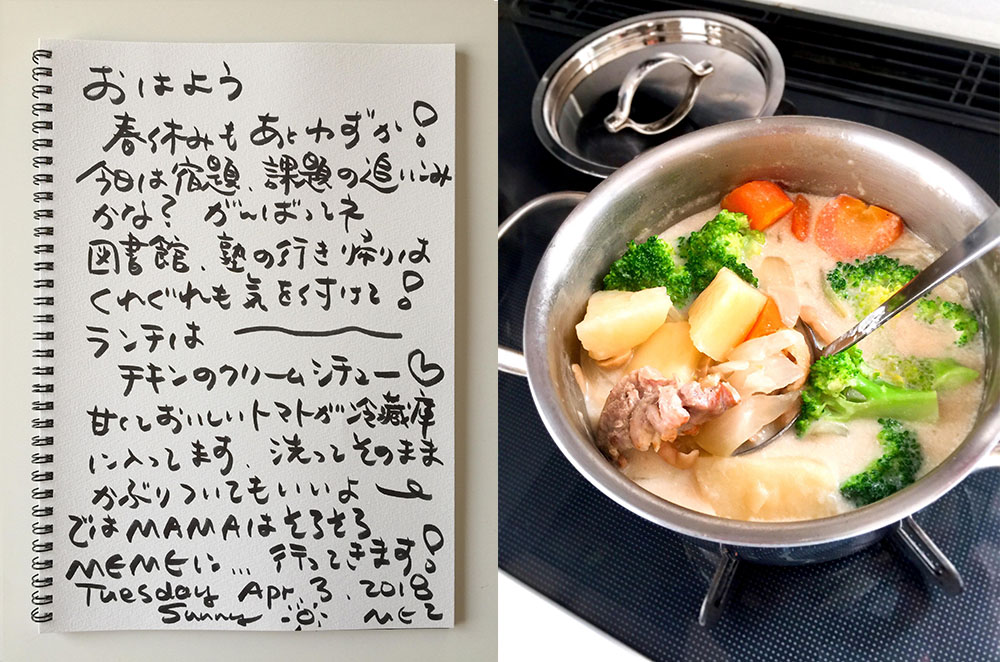 おはよう
春休みもあとわずか!
今日は宿題、課題の追いこみ
かな? がんばってネ
図書館、塾の行き帰りは
くれぐれも気を付けて!
ランチは
チキンのクリームシチュー♡
甘くておいしいトマトが冷蔵庫
に入ってます、洗ってそのまま
かぶりついてもいいよ
ではMAMAはそろそろ
MEMEに... 行ってきます!
Tuesday Apr. 3. 2018
Sunny